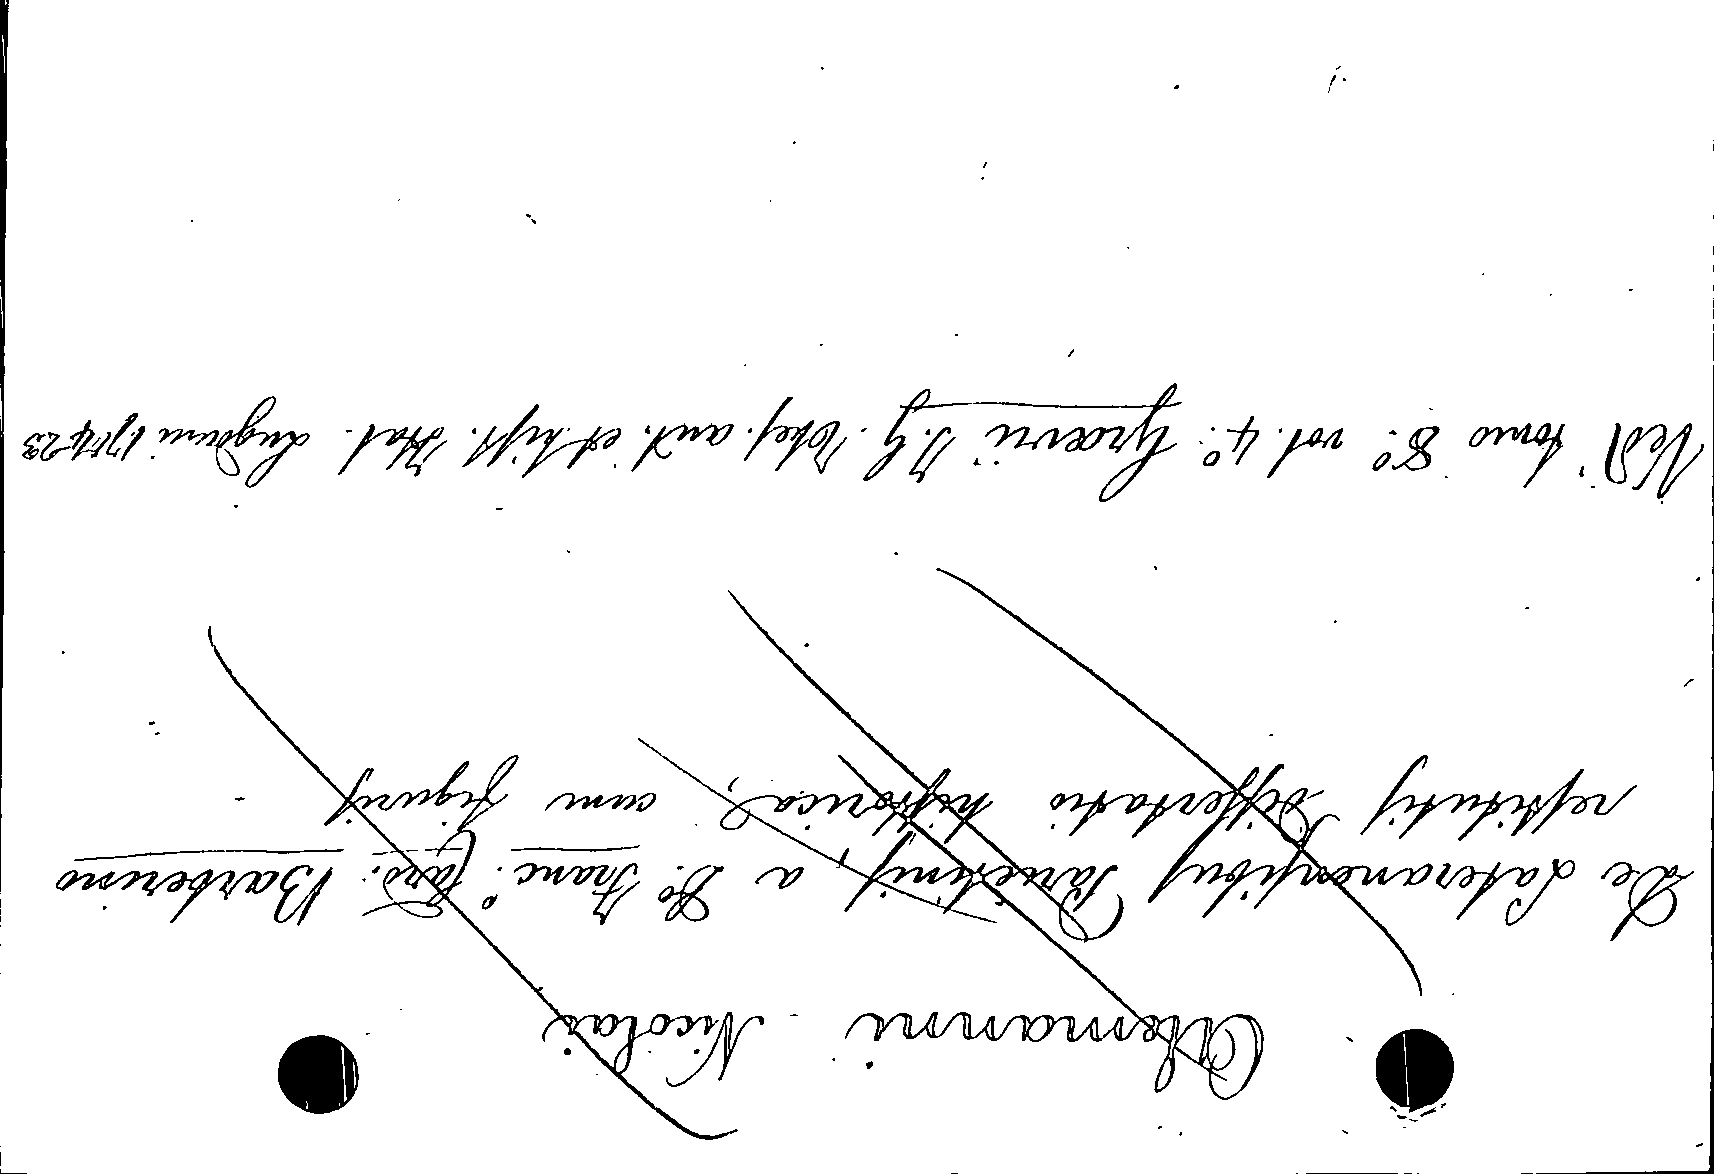 Alemanni Nicolai
De Lateranensibus Parietinis, a D.º Franc.º Card. Barberino
restitutis Dissertatio historica, cum figuris
Ved' tomo 8.º vol. 4.º Grævii J. G. Thes. ant. et hist. Ital. Lugduni